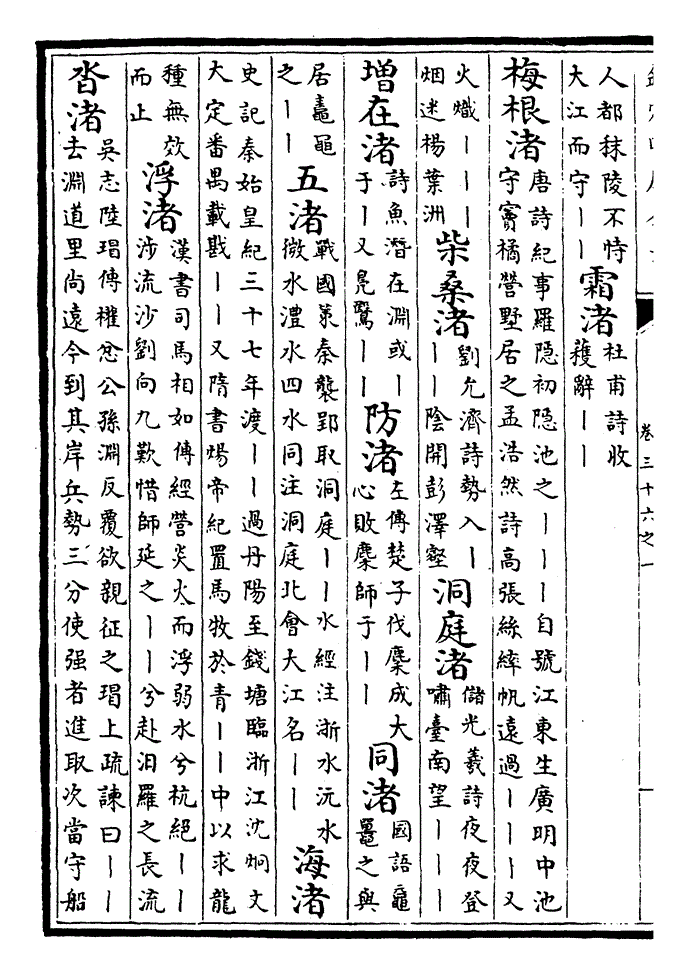 人都秣陵不恃
大江而守丨丨
霜渚
杜甫詩收
穫辭丨丨
梅根渚
唐詩紀事羅隱初隱池之丨丨丨自號江東生廣明中池
守竇橘營墅居之孟浩然詩高張絲繂帆遠過丨丨丨又
火熾丨丨丨
烟迷楊葉洲
柴桑渚
劉允濟詩勢入丨
丨丨陰開彭澤壑
洞庭渚
儲光羲詩夜夜登
嘯臺南望丨丨丨
增在渚
詩魚潛在淵或丨
于丨又鳧鷖丨丨
防渚
左傳楚子伐麇成大
心敗麇師于丨丨
同渚
國語龜
鼉之與
居鼃黽
之丨丨
五渚
戰國策秦襲郢取洞庭丨丨水經注浙水沅水
微水澧水四水同注洞庭北會大江名丨丨
海渚
史記秦始皇紀三十七年渡丨丨過丹陽至錢塘臨浙江沈炯文
大定番禺載戢丨丨又隋書煬帝紀置馬牧於青丨丨中以求龍
種無效
而止
浮渚
漢書司馬相如傳經營炎火而浮弱水兮杭絕丨丨
涉流沙劉向九歎惜師延之丨丨兮赴汨羅之長流
沓渚
吳志陸瑁傳權忿公孫淵反覆欲親征之瑁上疏諫曰丨丨
去淵道里尚遠今到其岸兵勢三分使强者進取次當守船
卷三十六之一